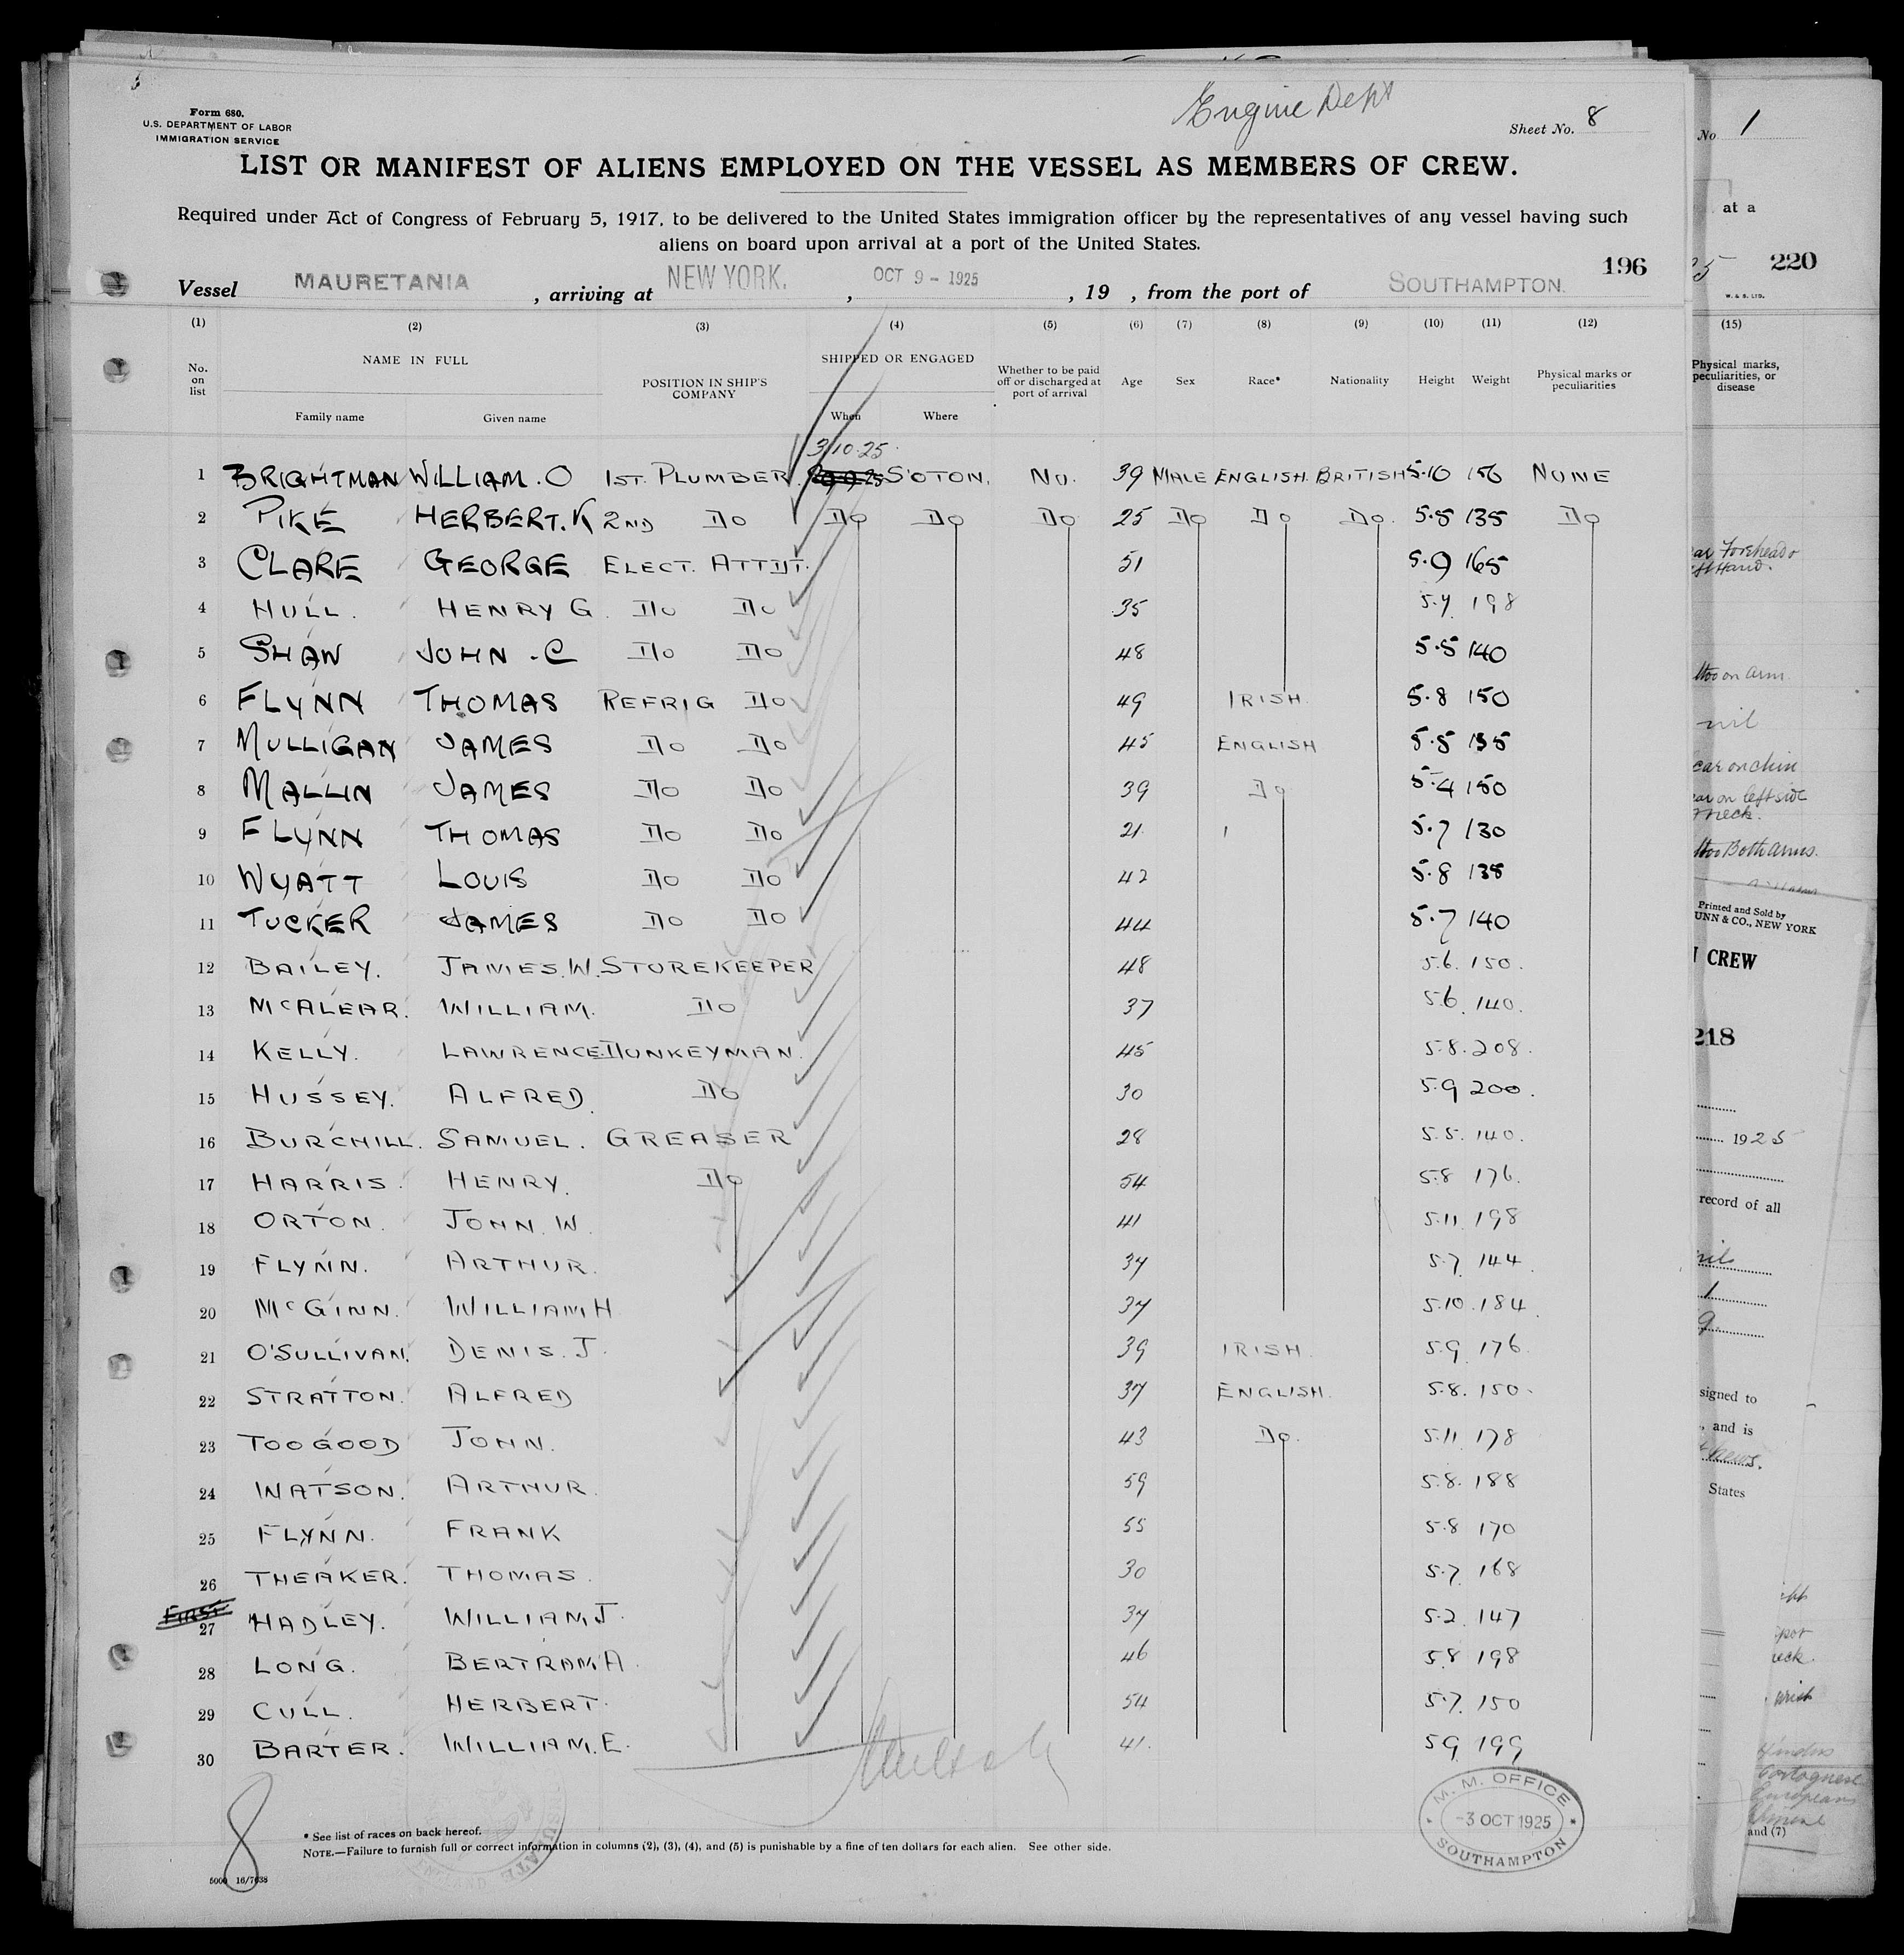 Engine Dept
Form 680.
U.S. DEPARTMENT OF LABOR
IMMIGRATION SERVICE
Sheet No. 8
LIST OR MANIFEST OF ALIENS EMPLOYED ON THE VESSEL AS MEMBERS OF CREW.
Required under Act of Congress of February 5, 1917, to be delivered to the United States immigration officer by the representatives of any vessel having such
aliens on board upon arrival at a port of the United States.
196
Vessel MAURETANIA , arriving at NEW YORK. , OCT 9 - 1925 , 19 , from the port of SOUTHAMPTON.
(1) (2) (3) (4) (5) (6) (7) (8) (9) (10) (11) (12)
No. on list NAME IN FULL Family name Given name POSITION IN SHIP'S COMPANY SHIPPED OR ENGAGED When Where Whether to be paid off or discharged at port of arrival Age Sex Race* Nationality Height Weight Physical marks or peculiarities
3/10.25.
1 BRIGHTMAN WILLIAM.O 1ST. PLUMBER. S'OTON. No. 39 MALE ENGLISH. BRITISH 5.10 156 NONE
2 PIKE HERBERT.K 2ND Do Do Do Do 25 Do Do Do. 5.5 135 Do
3 CLARE GEORGE ELECT. ATTDT. 51 5.9 165
4 HULL. HENRY G. Do Do 35 5.7. 198
5 SHAW JOHN.C Do Do 48 5.5 140
6 FLYNN THOMAS REFRIG Do 49 IRISH. 5.8 150
7 MULLIGAN JAMES Do Do 45 ENGLISH 5.5 135
8 MALLIN JAMES Do Do 39 Do 5.4 150
9 FLYNN THOMAS Do Do 21. 5.7 130
10 WYATT LOUIS Do Do 42 5.8 138
11 TUCKER JAMES Do Do 44 5.7 140
12 BAILEY. JAMES.W. STOREKEEPER 48 5.6. 150.
13 McALEAR. WILLIAM. Do 37 5.6. 140.
14 KELLY. LAWRENCE. DONKEYMAN. 45 5.8. 208.
15 HUSSEY. ALFRED. Do 30 5.9 200.
16 BURCHILL. SAMUEL. GREASER 28 5.5. 140.
17 HARRIS. HENRY. Do 54 5.8 176.
18 ORTON. JOHN W. 41 5.11. 198
19 FLYNN. ARTHUR. 37 5.7. 144.
20 McGINN. WILLIAM H 37 5.10. 184.
21 O'SULLIVAN. DENIS. J. 39 IRISH. 5.9. 176.
22 STRATTON. ALFRED 37 ENGLISH. 5.8. 150.
23 TOOGOOD JOHN. 43 Do. 5.11. 178
24 WATSON. ARTHUR. 59 5.8. 188
25 FLYNN. FRANK 55 5.8 170
26 THEAKER. THOMAS. 30 5.7. 168
27 HADLEY. WILLIAM J. 37 5.2. 147
28 LONG. BERTRAM A. 46 5.8 198
29 CULL. HERBERT. 54 5.7. 150
30 BARTER. WILLIAM. E. 41. 5.9. 199
8
* See list of races on back hereof.
NOTE.—Failure to furnish full or correct information in columns (2), (3), (4), and (5) is punishable by a fine of ten dollars for each alien. See other side.
5000 16/7638
M. M. OFFICE
-3 OCT 1925
SOUTHAMPTON
No 1
at a
220
W. & S. LTD.
(15)
Physical marks, peculiarities, or disease
Forehead
Hand.
on arm
nil
on chin
on left side
neck.
Both arms.
Printed and Sold by
UNN & CO., NEW YORK
CREW
218
1925
record of all
signed to
, and is
States
and (7)